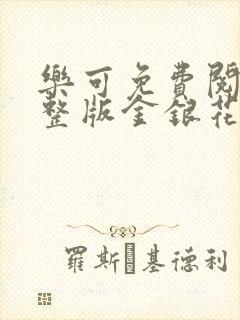 樂可免費閱
整版金銀花
羅斯 基德利